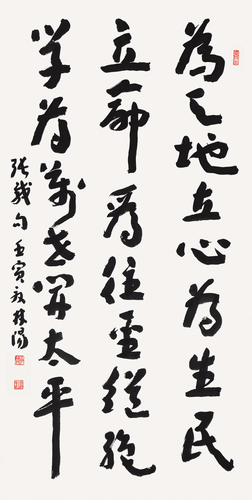 為天地立心為生民
立命為往聖繼絕
學為萬世開太平
張載句壬寅秋林陽